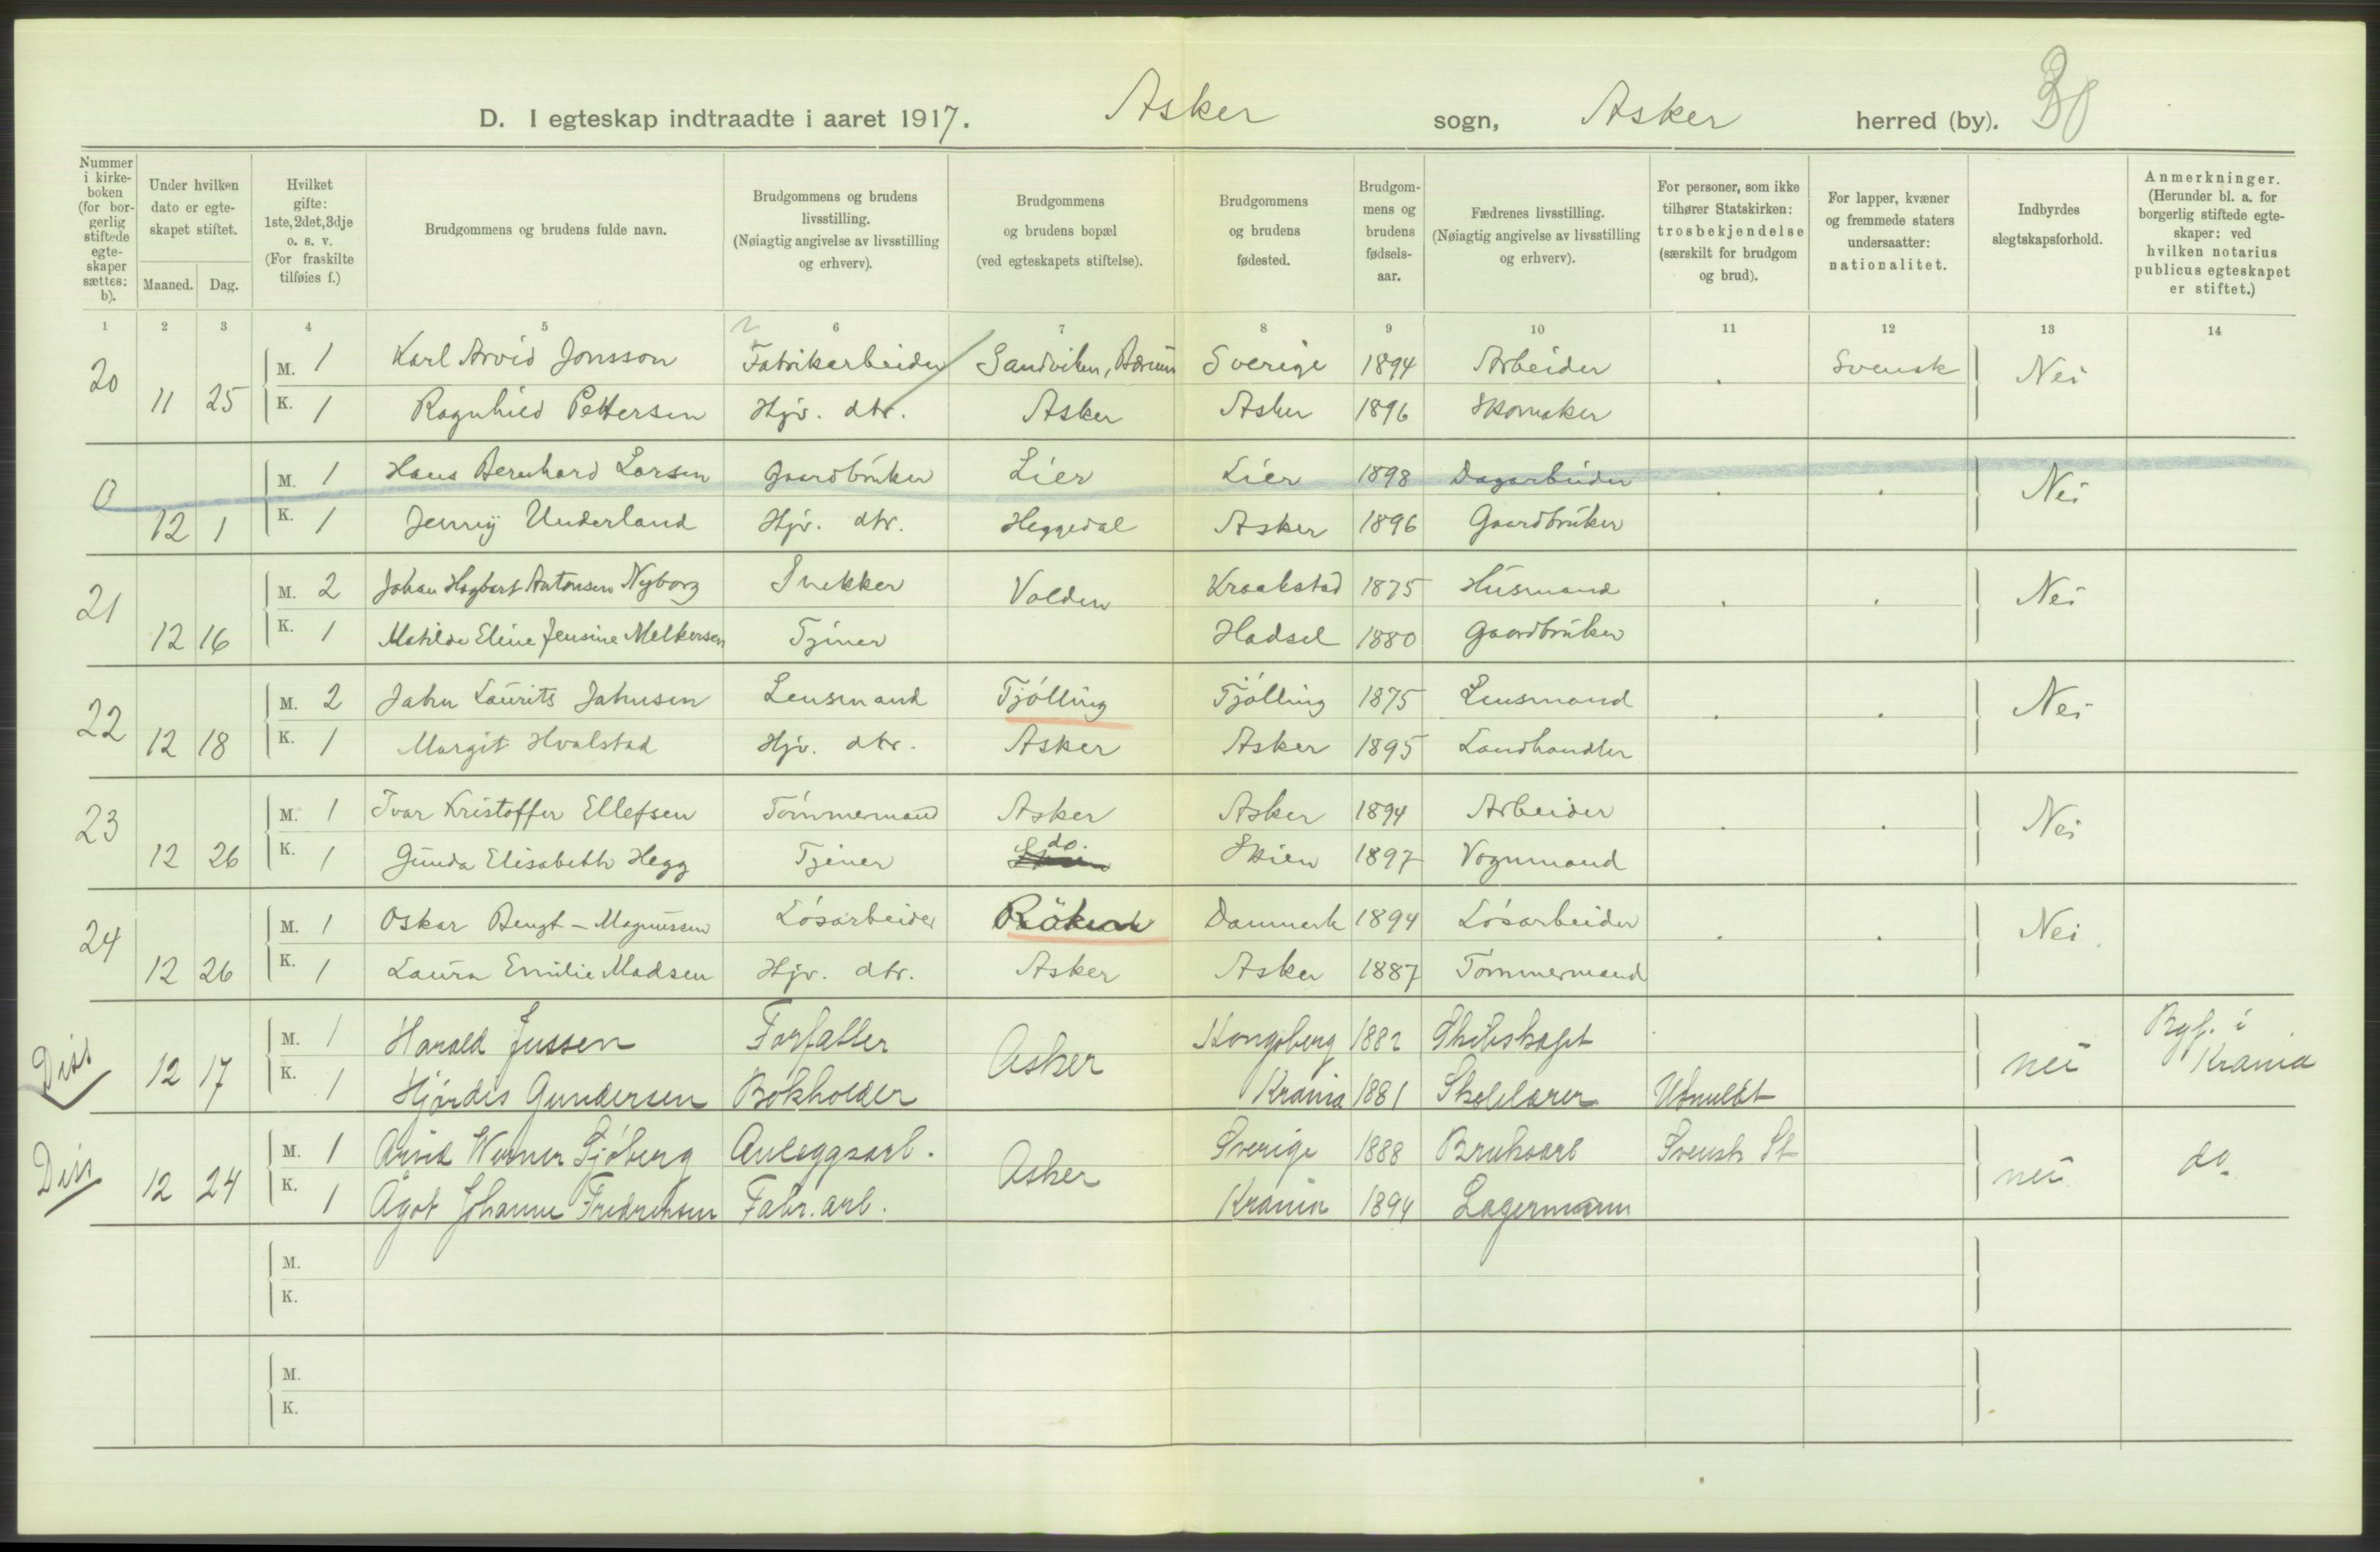 D. I egteskap indtraadte i aaret 1917. Asker sogn, Asker herred (by). 30
Nummer i kirke-boken (for bor-gerlig stiftede egte-skaper sættes: b).
Under hvilken dato er egte-skapet stiftet.
Maaned. Dag.
Hvilket gifte: 1ste, 2det, 3dje o. s. v. (For fraskilte tilføies f.)
Brudgommens og brudens fulde navn.
Brudgommens og brudens livsstilling. (Nøiagtig angivelse av livsstilling og erhverv).
Brudgommens og brudens bopæl (ved egteskapets stiftelse).
Brudgommens og brudens fødested.
Brudgom-mens og brudens fødsels-aar.
Fædrenes livsstilling. (Nøiagtig angivelse av livsstilling og erhverv).
For personer, som ikke tilhører Statskirken: trosbekjendelse (særskilt for brudgom og brud).
For lapper, kvæner og fremmede staters undersaatter: nationalitet.
Indbyrdes slegtskapsforhold.
Anmerkninger. (Herunder bl. a. for borgerlig stiftede egte-skaper: ved hvilken notarius publicus egteskapet er stiftet.)
1 2 3 4 5 6 7 8 9 10 11 12 13 14
20 M. 1 Karl Arvid Jonsson Fabrikarbeider Sandviken, Bærum Sverige 1894 Arbeider . Svensk Nei
11 25 K. 1 Ragnhild Pettersen Hjv. dtr. Asker Asker 1896 Skomaker
0 M. 1 Hans Bernhard Larsen Gaardbruker Lier Lier 1898 Dagarbeider . . Nei
12 1 K. 1 Jenny Underland Hjv. dtr. Heggedal Asker 1896 Gaardbruker
21 M. 2 Johan Hagbart Antonsen Nyborg Snekker Valden Kraakstad 1875 Husmand . . Nei
12 16 K. 1 Matilde Eline Jensine Melkersen Tjener Hadsel 1880 Gaardbruker
22 M. 2 Jahn Laurits Jahnsen Lensmand Tjølling Tjølling 1875 Lensmand . . Nei
12 18 K. 1 Margit Hvalstad Hjv. dtr. Asker Asker 1895 Landhandler
23 M. 1 Ivar Kristoffer Ellefsen Tømmermand Asker Asker 1894 Arbeider . . Nei
12 26 K. 1 Gunda Elisabeth Hegg Tjener do. Skien 1897 Vognmand
24 M. 1 Oskar Bengt-Magnussen Løsarbeider Röken Danmark 1894 Løsarbeider . . Nei
12 26 K. 1 Laura Emilie Madsen Hjv. dtr. Asker Asker 1887 Tømmermand
Diss 12 17 M. 1 Harald Jussen Forfatter Asker Kongsberg 1882 Skibskapt nei Byf. i Krania
K. 1 Hjørdis Gundersen Bokholder Krania 1881 Skolelærer Utmeldt
Diss 12 24 M. 1 Arvid Werner Sjöberg Anleggsarb. Asker Sverige 1888 Bruksarb Svensk St nei do
K. 1 Ågot Johanne Fredriksen Fabr. arb. Krania 1894 Lagermann
M.
K.
M.
K.